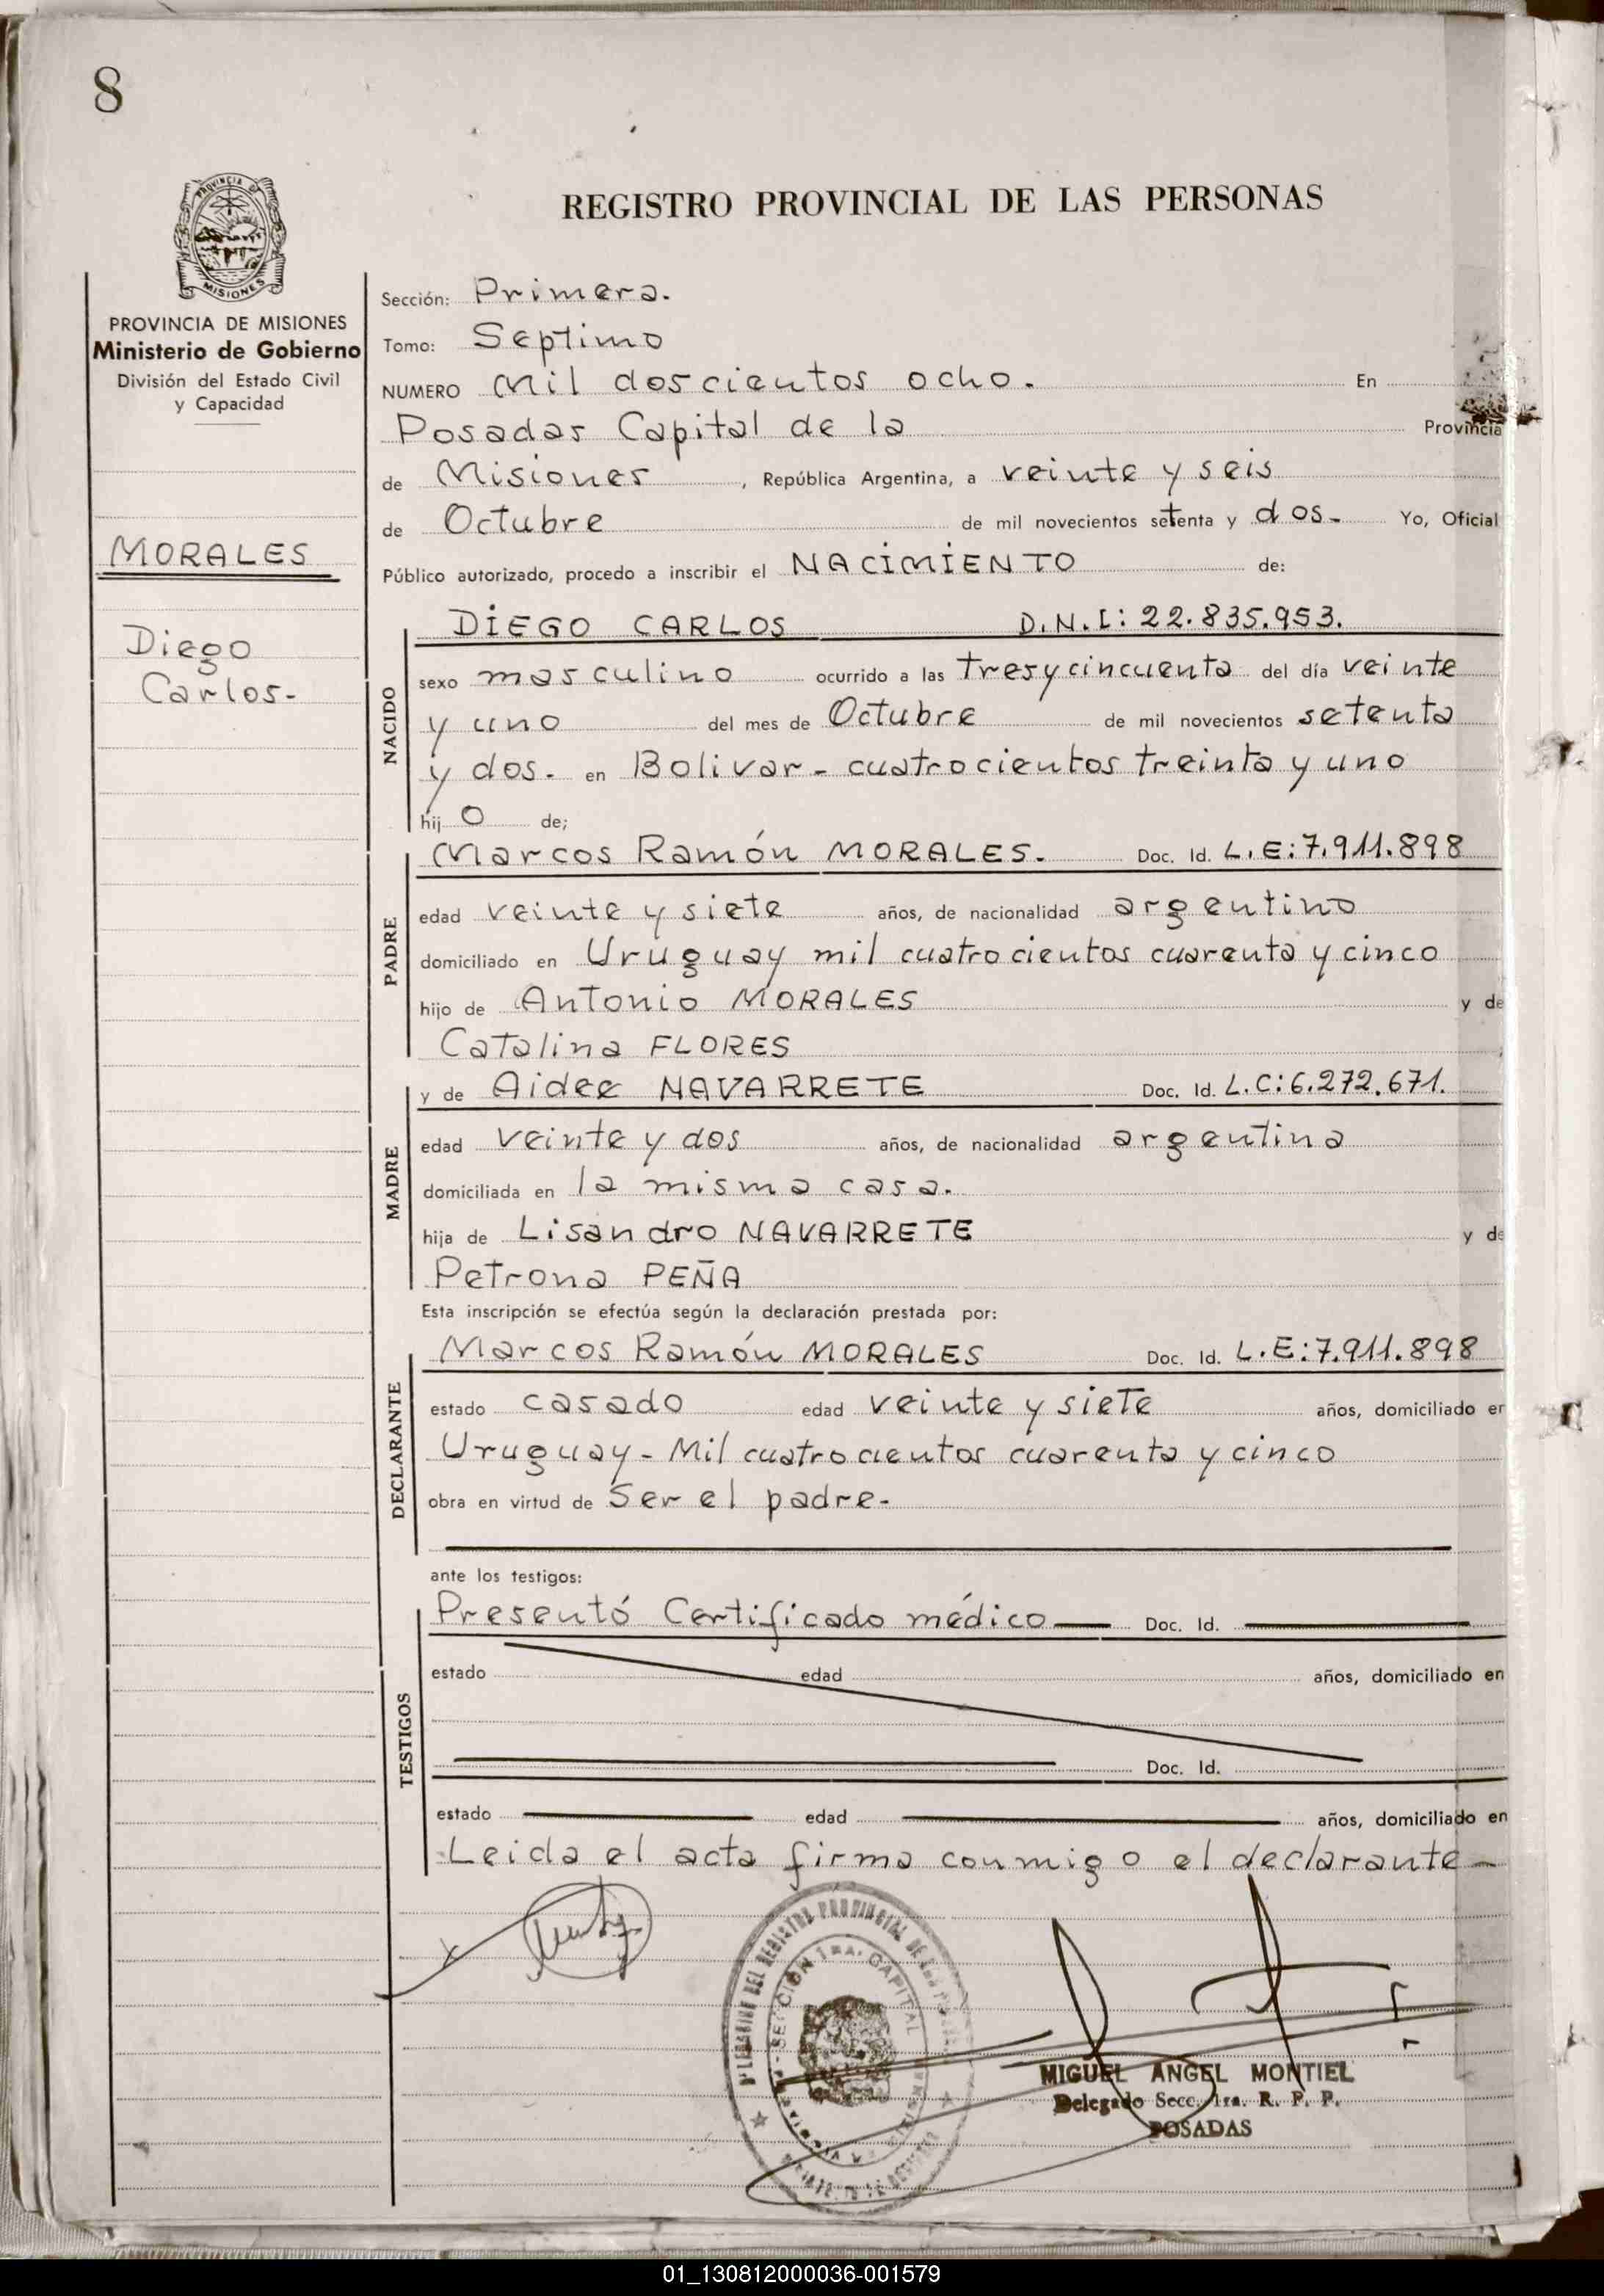 8
REGISTRO PROVINCIAL DE LAS PERSONAS
PROVINCIA DE MISIONES
PROVINCIA DE MISIONES
Ministerio de Gobierno
División del Estado Civil
y Capacidad
MORALES
Diego
Carlos-
Sección: Primera.
Tomo: Septimo
NUMERO Mil doscientos ocho. En
Posadas Capital de la Provincia
de Misiones, República Argentina, a veinte y seis
de Octubre de mil novecientos setenta y dos- Yo, Oficial
Público autorizado, procedo a inscribir el NACIMIENTO de:
NACIDO
DIEGO CARLOS D.N.I: 22.835.953.
sexo masculino ocurrido a las tres y cincuenta del día veinte
y uno del mes de Octubre de mil novecientos setenta
y dos- en Bolivar- cuatrocientos treinta y uno
hij o de;
PADRE
Marcos Ramón MORALES- Doc. Id. L.E:7.911.898
edad veinte y siete años, de nacionalidad argentino
domiciliado en Uruguay mil cuatrocientos cuarenta y cinco
hijo de Antonio MORALES y de
Catalina FLORES
MADRE
y de Aidee NAVARRETE Doc. Id. L.C:6.272.671.
edad veinte y dos años, de nacionalidad argentina
domiciliada en la misma casa.
hija de Lisandro NAVARRETE y de
Petrona PEÑA
Esta inscripción se efectúa según la declaración prestada por:
DECLARANTE
Marcos Ramón MORALES Doc. Id. L.E:7.911.898
estado casado edad veinte y siete años, domiciliado en
Uruguay- Mil cuatrocientos cuarenta y cinco
obra en virtud de Ser el padre-
ante los testigos:
TESTIGOS
Presentó Certificado médico Doc. Id.
estado edad años, domiciliado en
Doc. Id.
estado edad años, domiciliado en
Leida el acta firma conmigo el declarante-
SECCION 1RA. CAPITAL
MIGUEL ANGEL MONTIEL
Delegado Secc. 1ra. R. P. P.
POSADAS
01_130812000036-001579